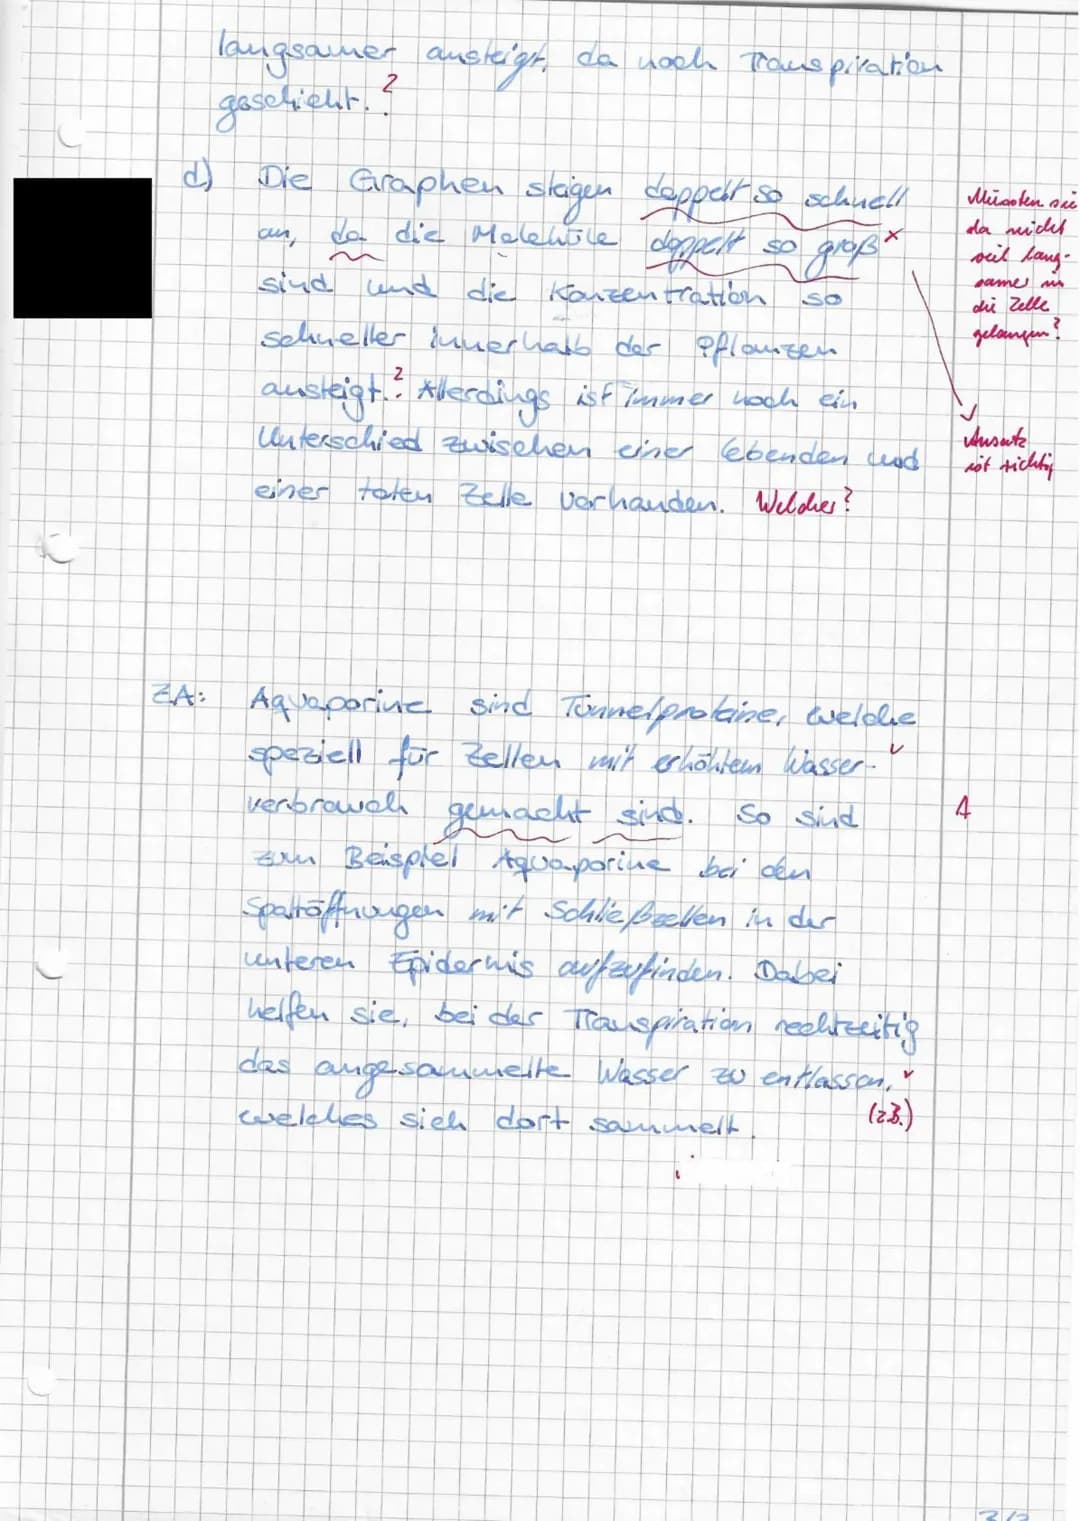 langsamer ansteigt, da noch Transpiration
geschieht. ?
d) Die Graphen steigen doppelt so schnell
an, da die Moleküle doppelt so groß x
sind und die Konzentration so
schneller innerhalb der Pflanzen
ansteigt. ? Allerdings ist immer noch ein
Unterschied zwischen einer lebenden und
einer toten Zelle vorhanden. Welcher?
Müssten sie
da nicht
viel lang-
samer in
die Zelle
gelangen?
Ansatz
ist richtig
ZA: Aquaporine sind Tunnelproteine, welche
speziell für Zellen mit erhöhtem Wasser- ✓
verbrauch gemacht sind. So sind
A
zum Beispiel Aquaporine bei den
Spaltöffnungen mit Schließzellen in der
unteren Epidermis aufzufinden. Dabei
helfen sie, bei der Transpiration rechtzeitig
das angesammelte Wasser zu entlassen, ✓
welches sich dort sammelt. (z.B.)